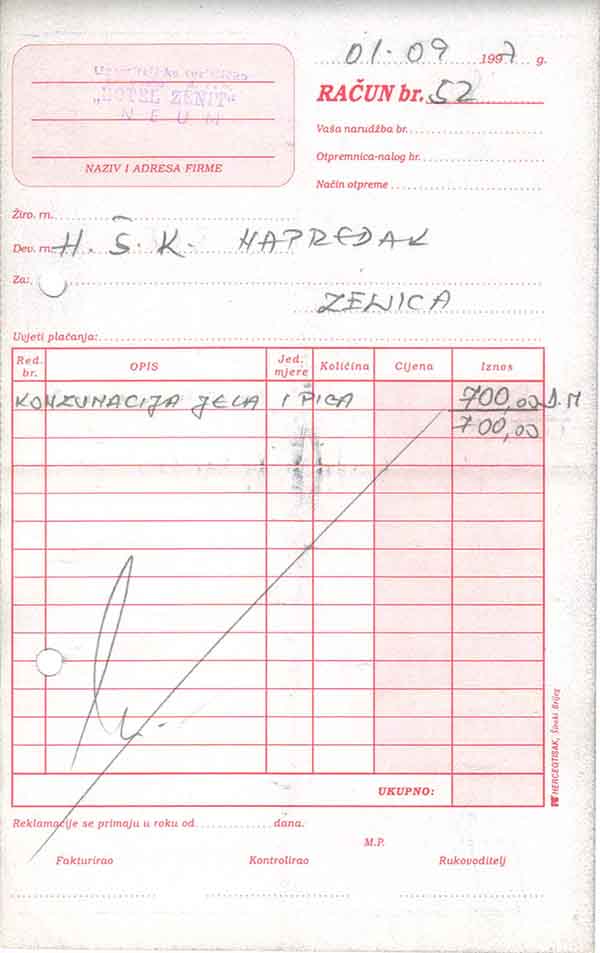 01.09 1997 g.
"HOTEL ZENIT"
NEUM
NAZIV I ADRESA FIRME
RAČUN br. 52
Vaša narudžba br.
Otpremnica-nalog br.
Način otpreme
Žiro. rn.
Dev. rn. H.Š.K. NAPREDAK
Za:
ZENICA
Uvjeti plaćanja:
Red. br. OPIS Jed. mjere Količina Cijena Iznos
KONZUMACIJA JELA I PIĆA 700,00 D.M
700,00
UKUPNO:
HERCEGTISAK, Široki Brijeg
Reklamacije se primaju u roku od dana.
M.P.
Fakturirao Kontrolirao Rukovoditelj